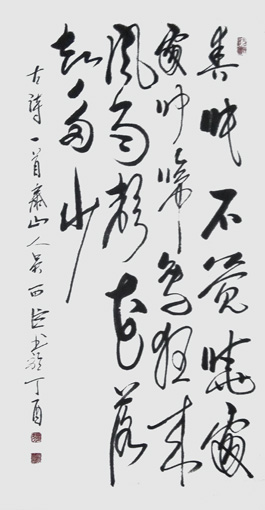 春眠不觉曉處
處闻啼鸟夜来
风雨声花落
知多少
古诗一首泰山人吴西书於丁酉